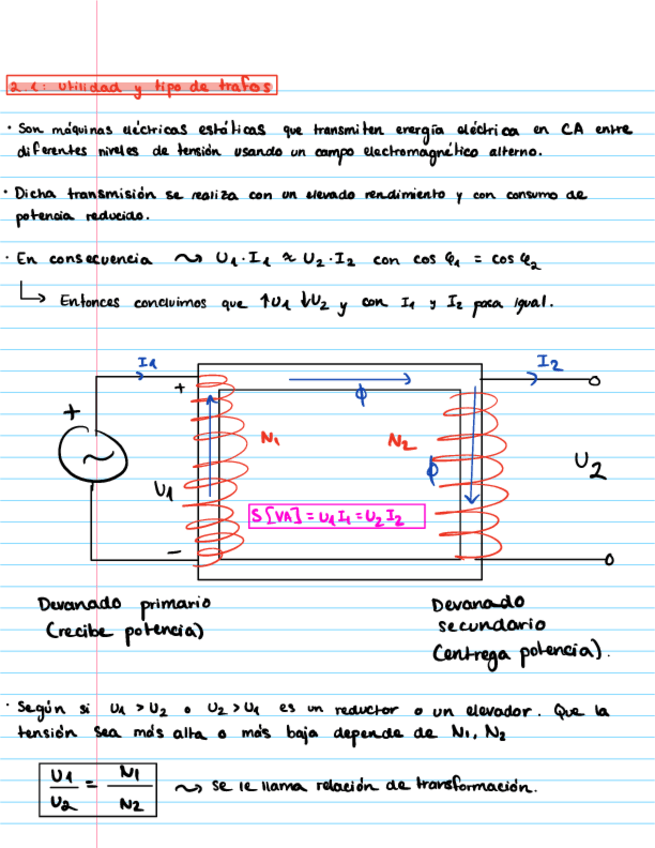 2.1: Utilidad y tipo de trafos
· Son máquinas eléctricas estáticas que transmiten energía eléctrica en CA entre
diferentes niveles de tensión usando un campo electromagnético alterno.
· Dicha transmisión se realiza con un elevado rendimiento y con consumo de
potencia reducido.
· En consecuencia ⤳ U1·I1 ≈ U2·I2 con cos φ1 = cos φ2
↳ Entonces concluimos que ↑U1 ↓U2 y con I1 y I2 pasa igual.
I1
ϕ
I2
+
+
N1
N2
ϕ
U2
U1
S[VA] = U1 I1 = U2 I2
−
Devanado primario
(recibe potencia)
Devanado
secundario
(entrega potencia).
· Según si U1 > U2 o U2 > U1 es un reductor o un elevador. Que la
tensión sea más alta o más baja depende de N1, N2
U1/U2 = N1/N2 ⤳ se le llama relación de transformación.